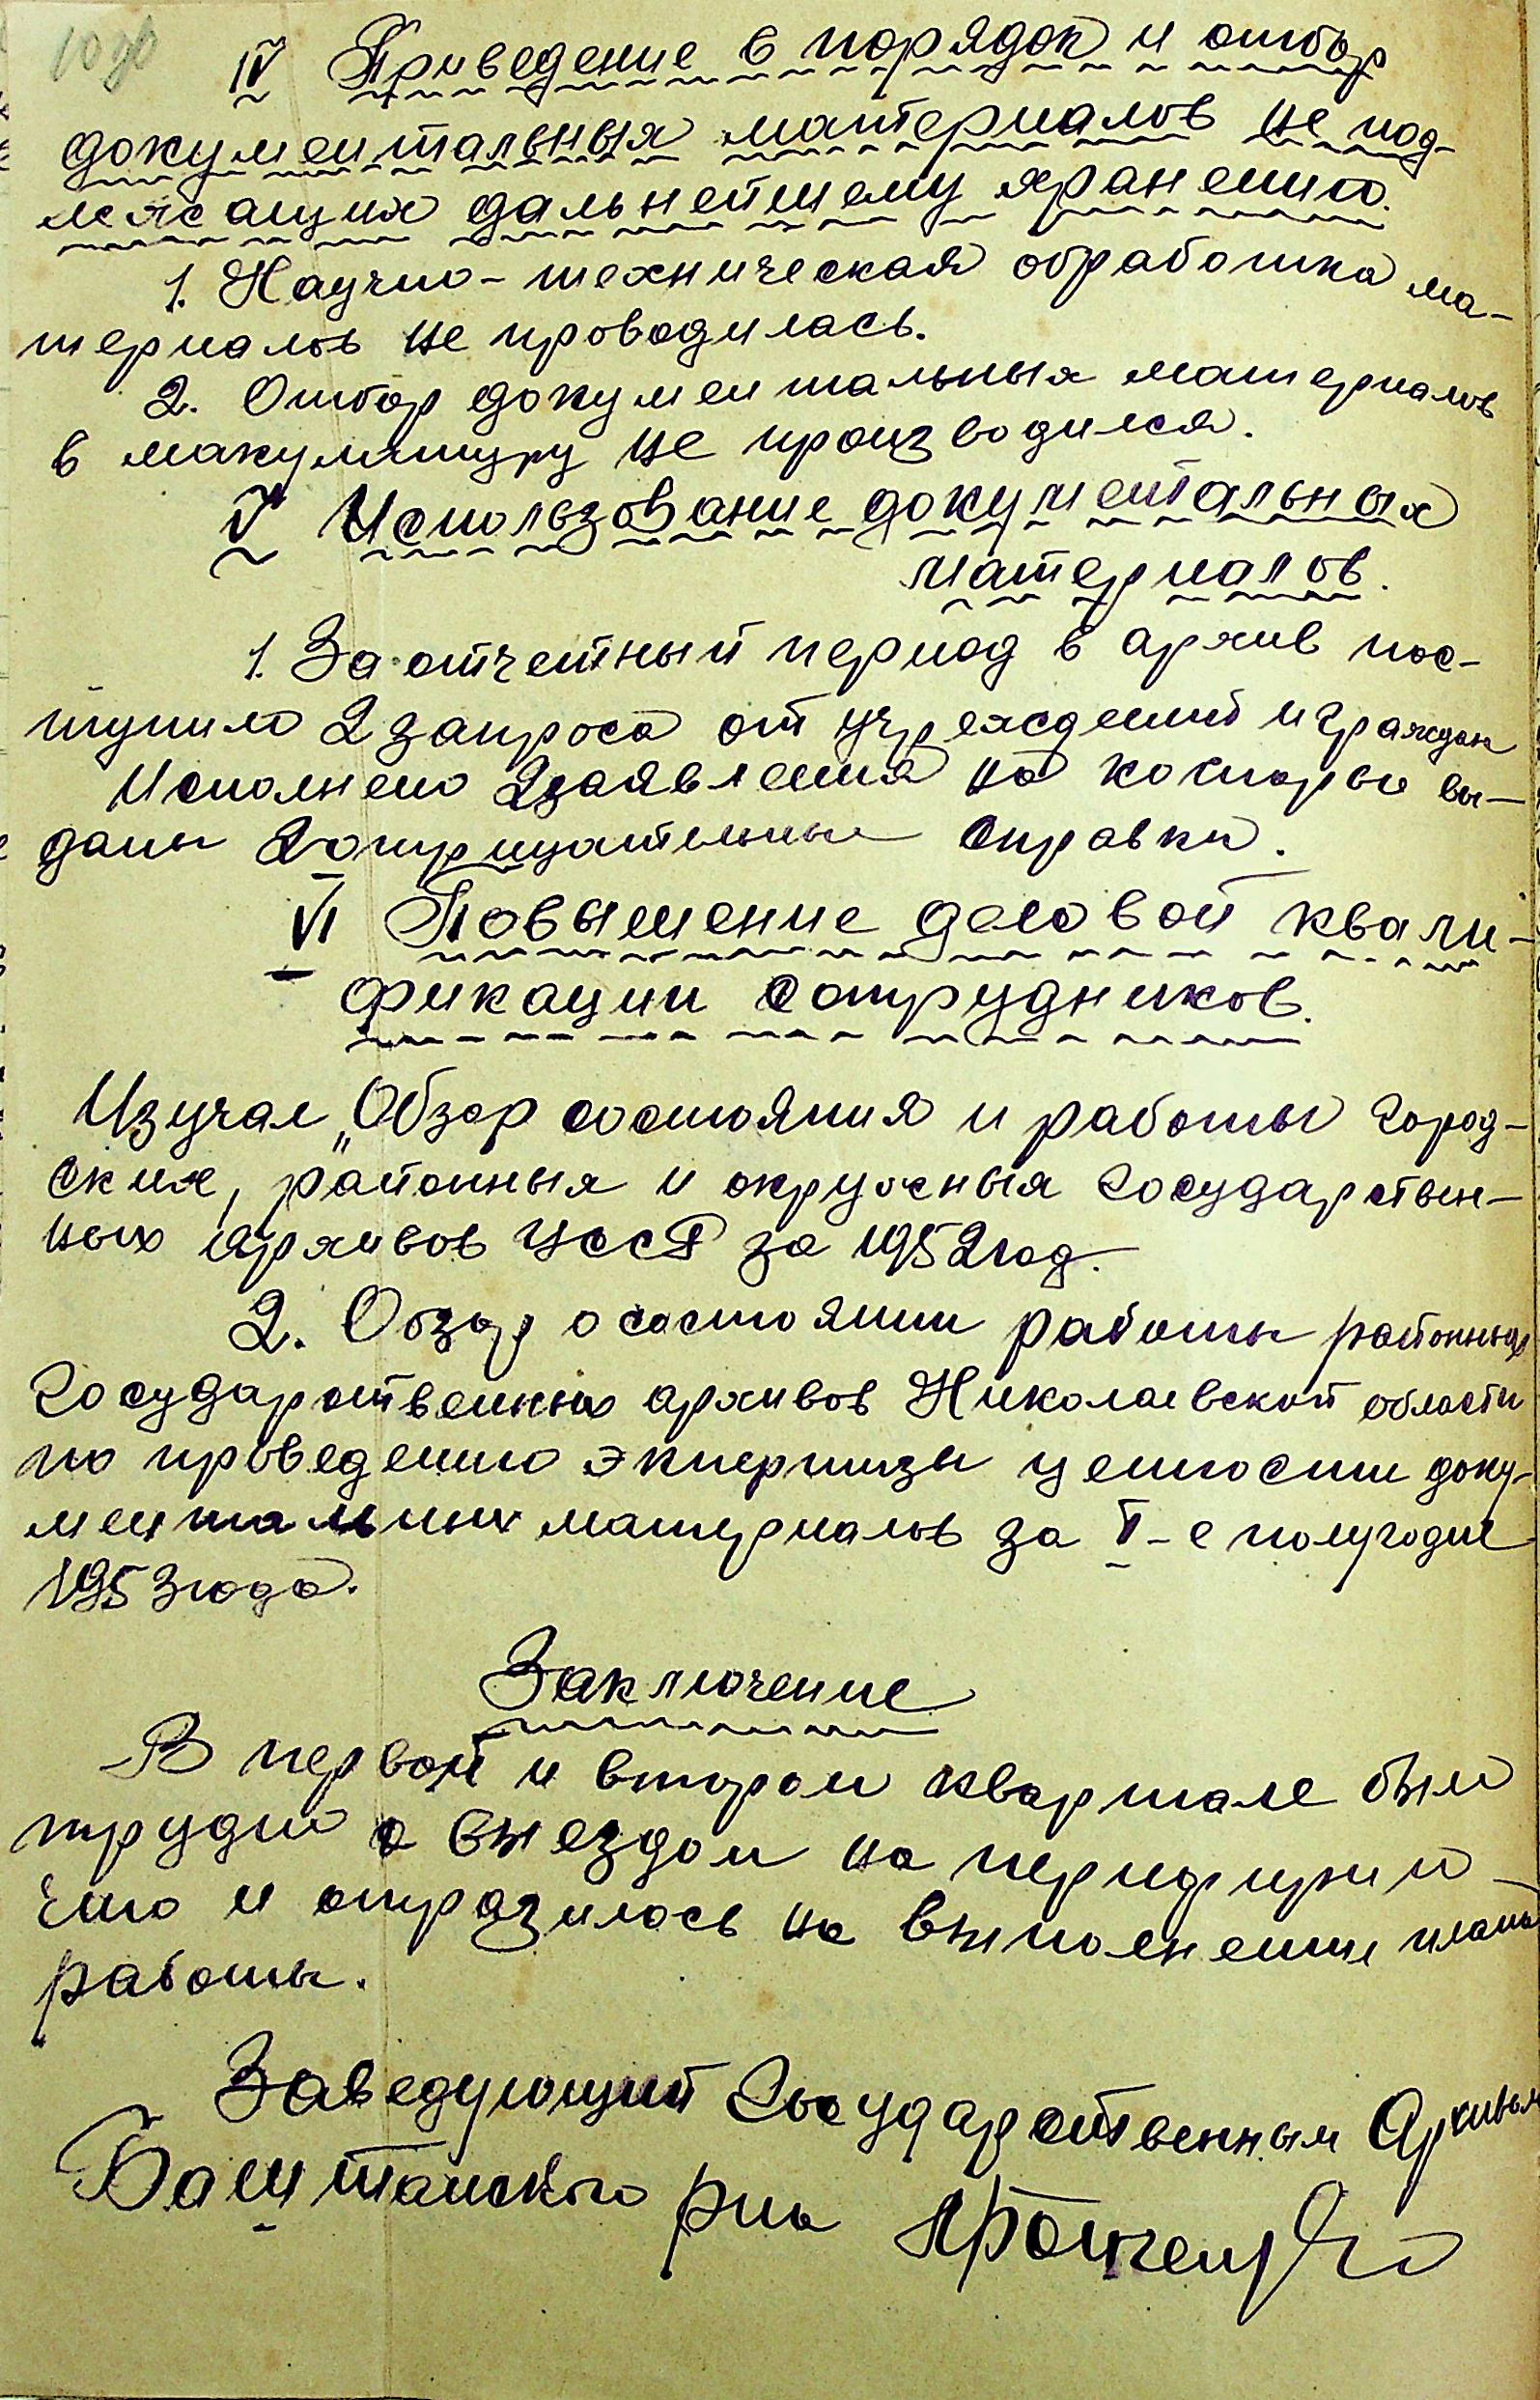 10 об
IV Приведение в порядок и отбор
документальных материалов не под-
лежащих дальнейшему хранению.
1. Научно-техническая обработка ма-
териалов не проводилась.
2. Отбор документальных материалов
в макулятуру не производился.
V Использование документальных
материалов.
1. За отчетный период в архив пос-
тупило 2 запроса от учреждений и граждан
Исполнено 2 заявления на которые вы-
даны 2 отрицательные справки.
VI Повышение деловой квали-
фикации сотрудников.
Изучал „Обзор состояния и работы город-
ских, районных и окружных государствен-
ных архивов УССР за 1952 год.
2. Обзор о состоянии работы районных
государственных архивов Николаевской области
по проведению экпертизы ценности доку-
ментальных материалов за I-е полугодие
1953 года.
Заключение
В первом и втором квартале было
трудно с выездом на периферию
что и отразилось на выполнении плана
работы.
Заведующий Государственным Архивом
Баштанского р-на